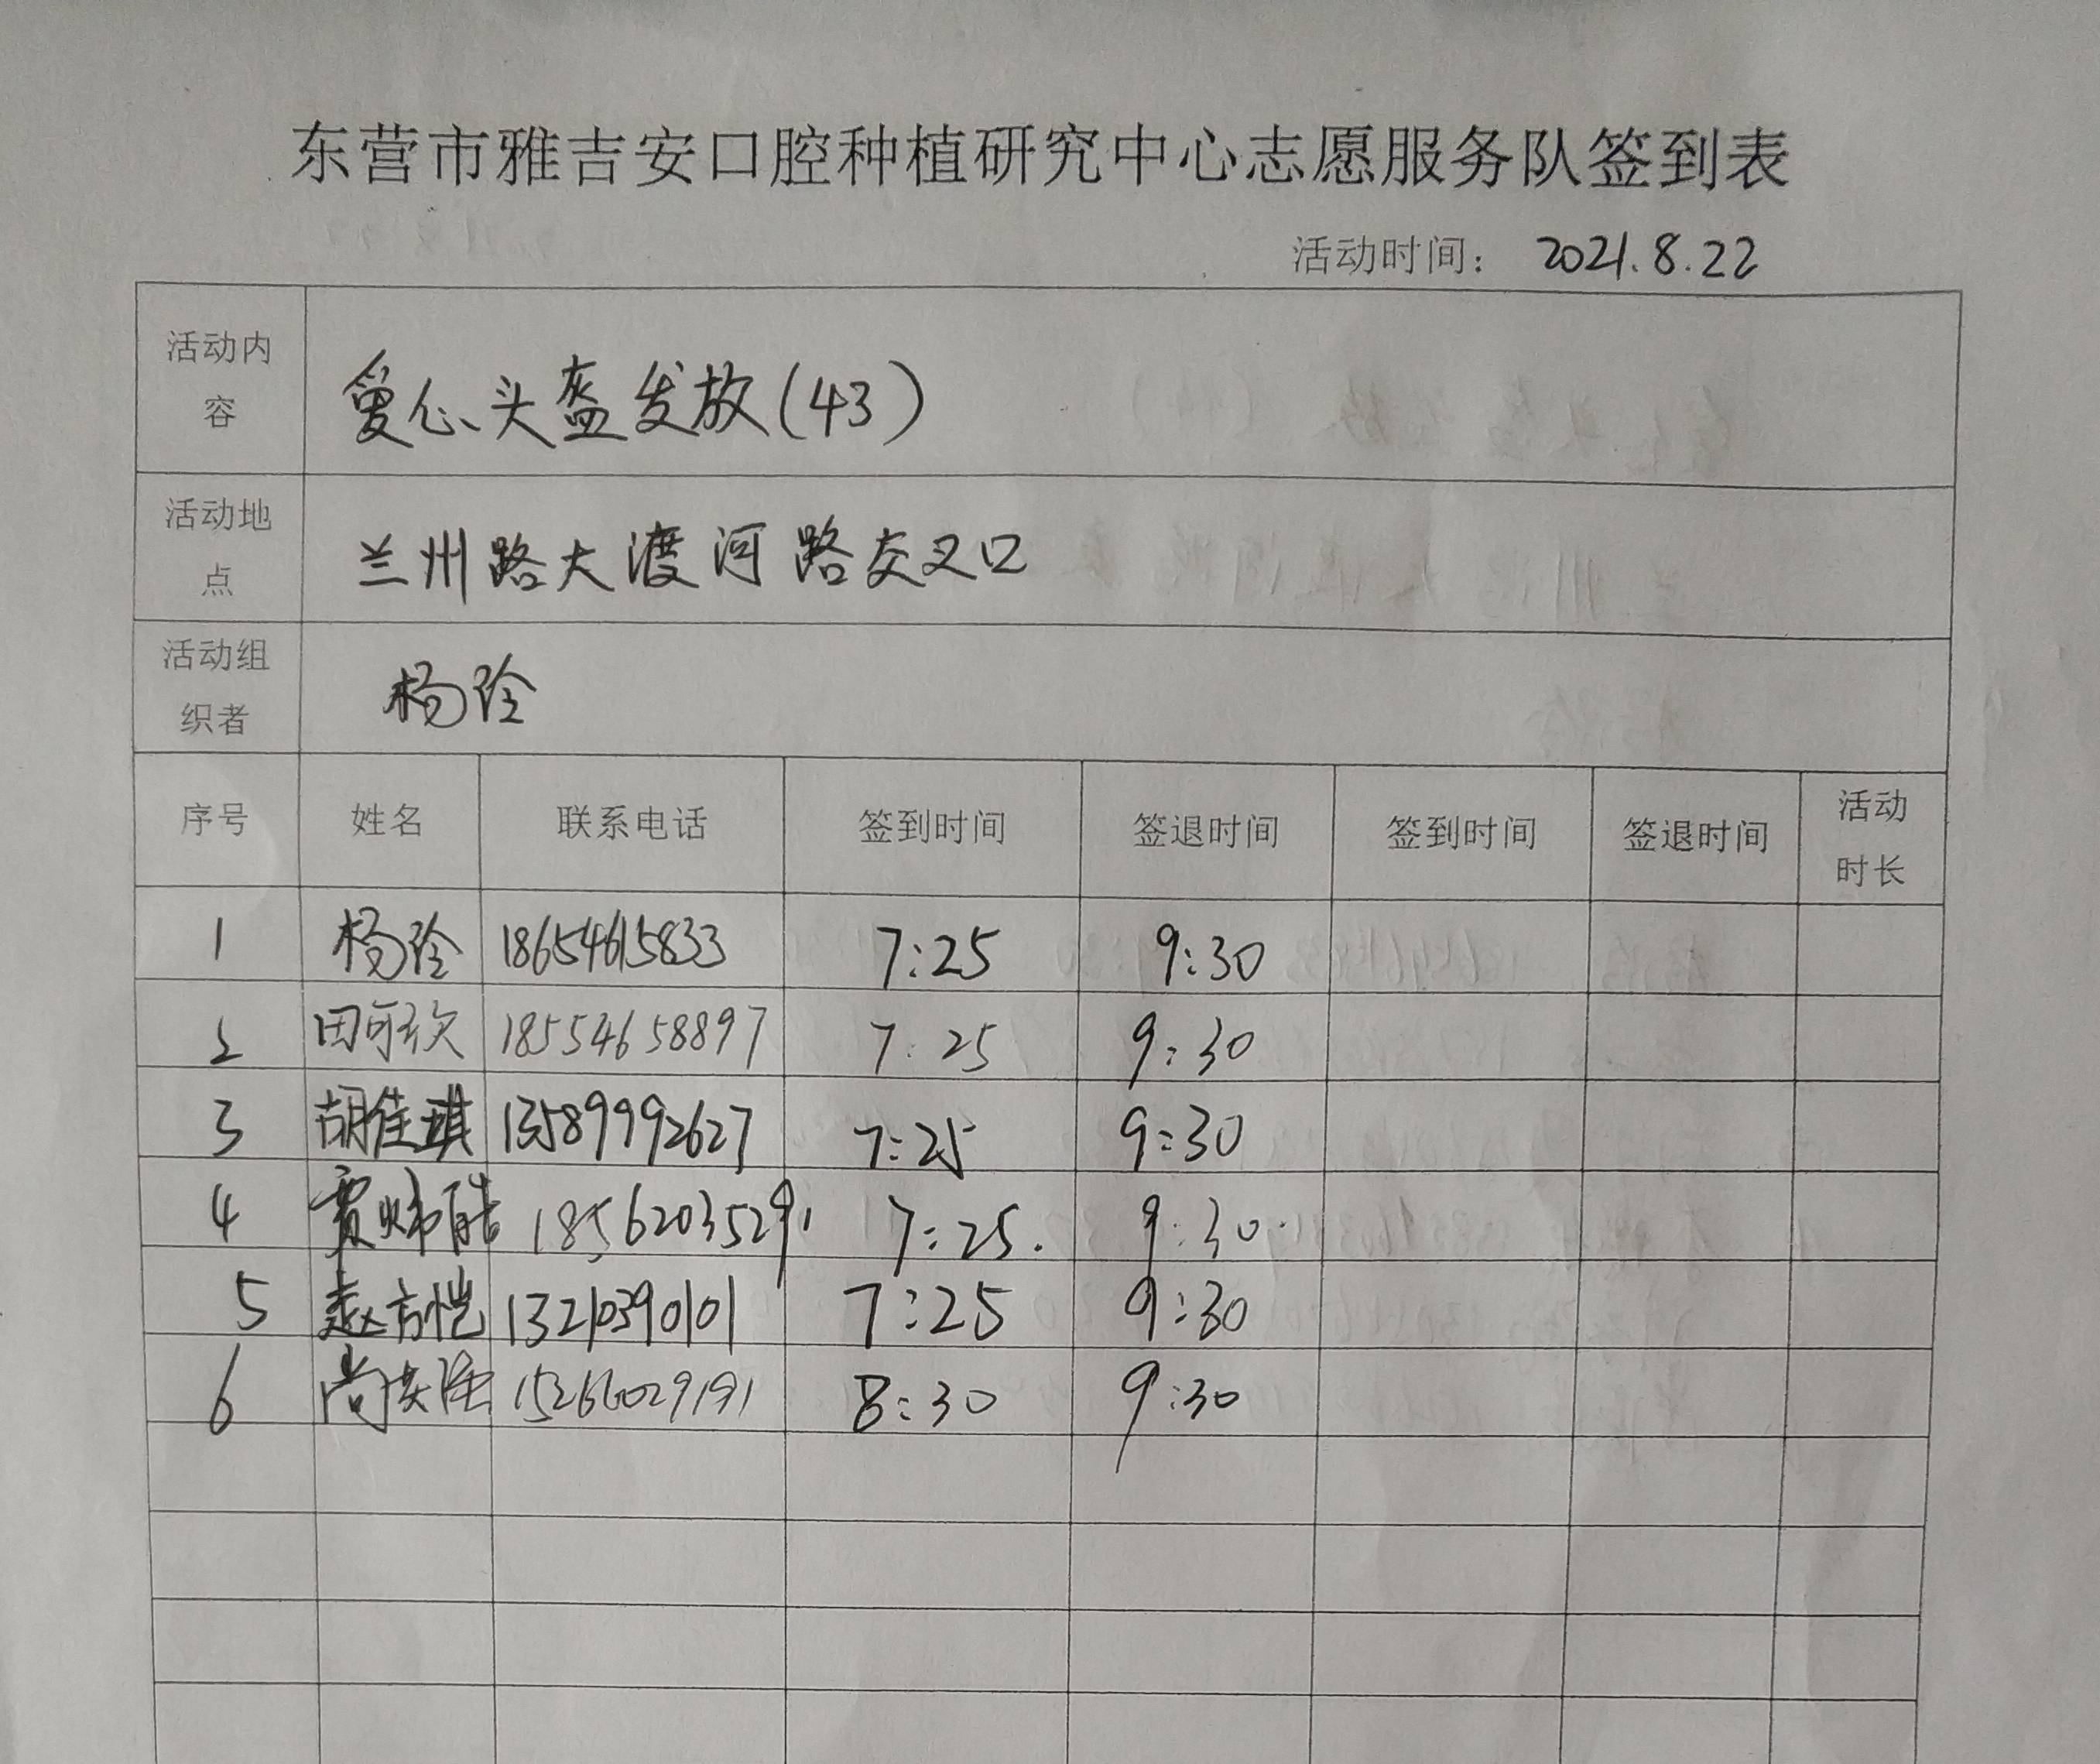 东营市雅吉安口腔种植研究中心志愿服务队签到表
活动时间： 2021.8.22
活动内容 爱心头盔发放(43)
活动地点 兰州路大渡河路交叉口
活动组织者 杨玲
序号 姓名 联系电话 签到时间 签退时间 签到时间 签退时间 活动时长
1 杨玲 18654615833 7:25 9:30
2 18554658897 7:25 9:30
3 胡佳琪 13589992627 7:25 9:30
4 18562035291 7:25. 9:30.
5 赵方恺 13210390101 7:25 9:30
6 15266029191 8:30 9:30